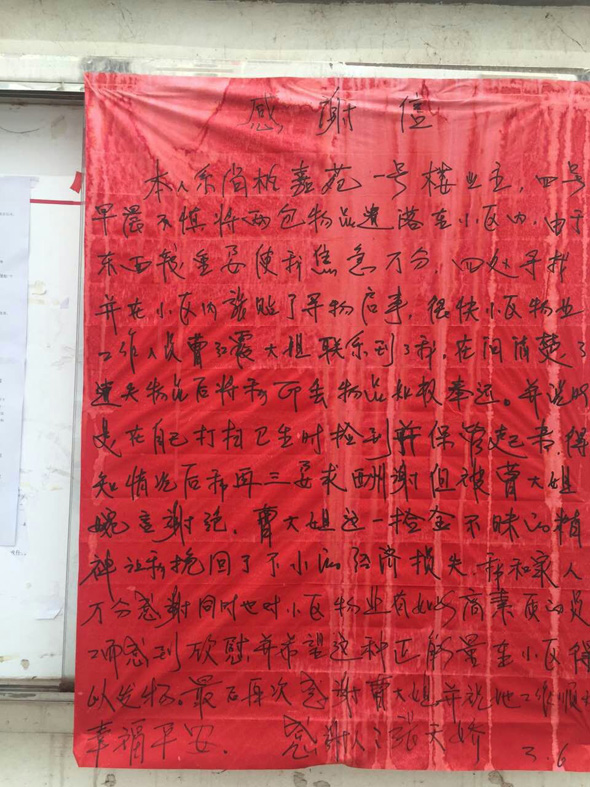 感谢信
本人系尚栋嘉苑一号楼业主,四号
早晨不慎将两包物品遗落在小区内,由于
东西较重要使我焦急万分,四处寻找
并在小区内张贴了寻物启事,很快小区物业
工作人员曹红霞大姐联系到了我,在问清楚了
遗失物品后将我所丢物品如数奉还。并说明
是在自己打扫卫生时捡到并保管起来,得
知情况后我再三要求酬谢但被曹大姐
婉言谢绝,曹大姐这一捡金不昧的精
神让我挽回了不小的经济损失,我和家人
万分感谢同时也对小区物业有如此高素质的员
工而感到欣慰,并希望这种正能量在小区得
以发扬。最后再次感谢曹大姐,并祝她工作顺
幸福平安. 感谢人:张天娇 3.6